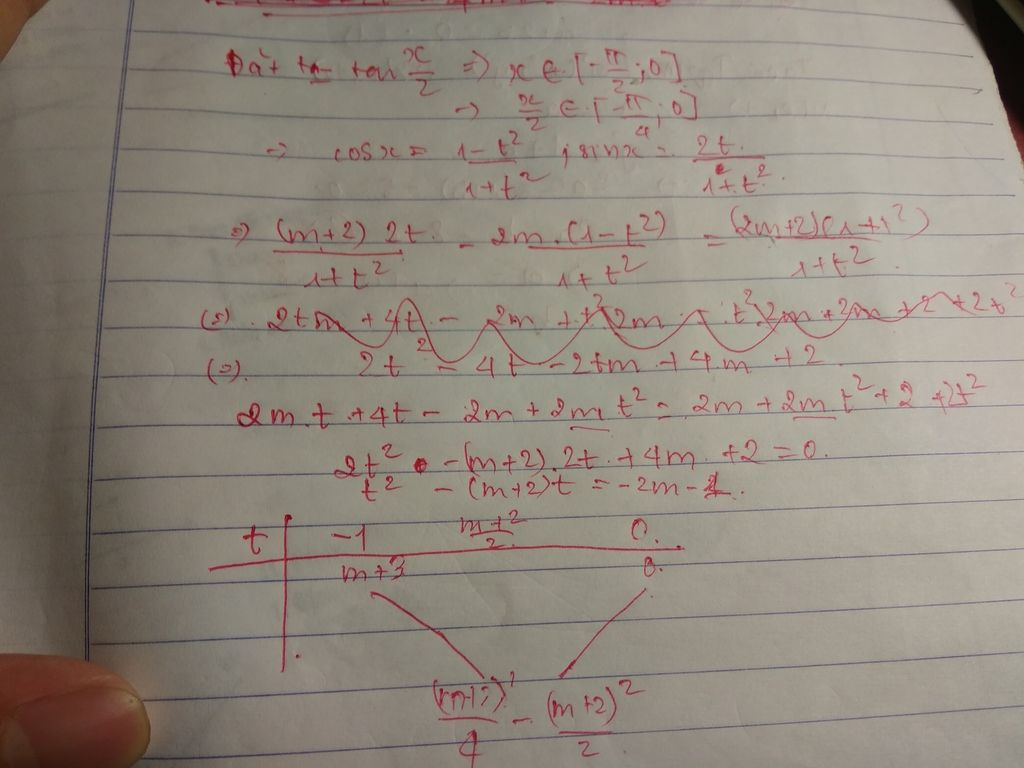 Đặt t = tan x/2 => x ∈ [-π/2; 0]
→ x/2 ∈ [-π/4; 0]
=> cosx = (1-t²)/(1+t²) ; sinx = 2t/(1+t²).
=> (m+2) 2t/(1+t²) - 2m.(1-t²)/(1+t²) = (2m+2)(1+t²)/(1+t²).
(=) 2tm + 4t - 2m + t² 2m - t² 2m + 2m + 2 + 2t²
(=). 2t² - 4t - 2tm + 4m + 2
2m.t + 4t - 2m + 2m t² = 2m + 2m t² + 2 + 2t²
2t² - (m+2).2t + 4m + 2 = 0.
t² - (m+2)t = -2m - 1.
t -1 (m+2)/2 0.
m+3 0.
(m+2)²/4 - (m+2)²/2